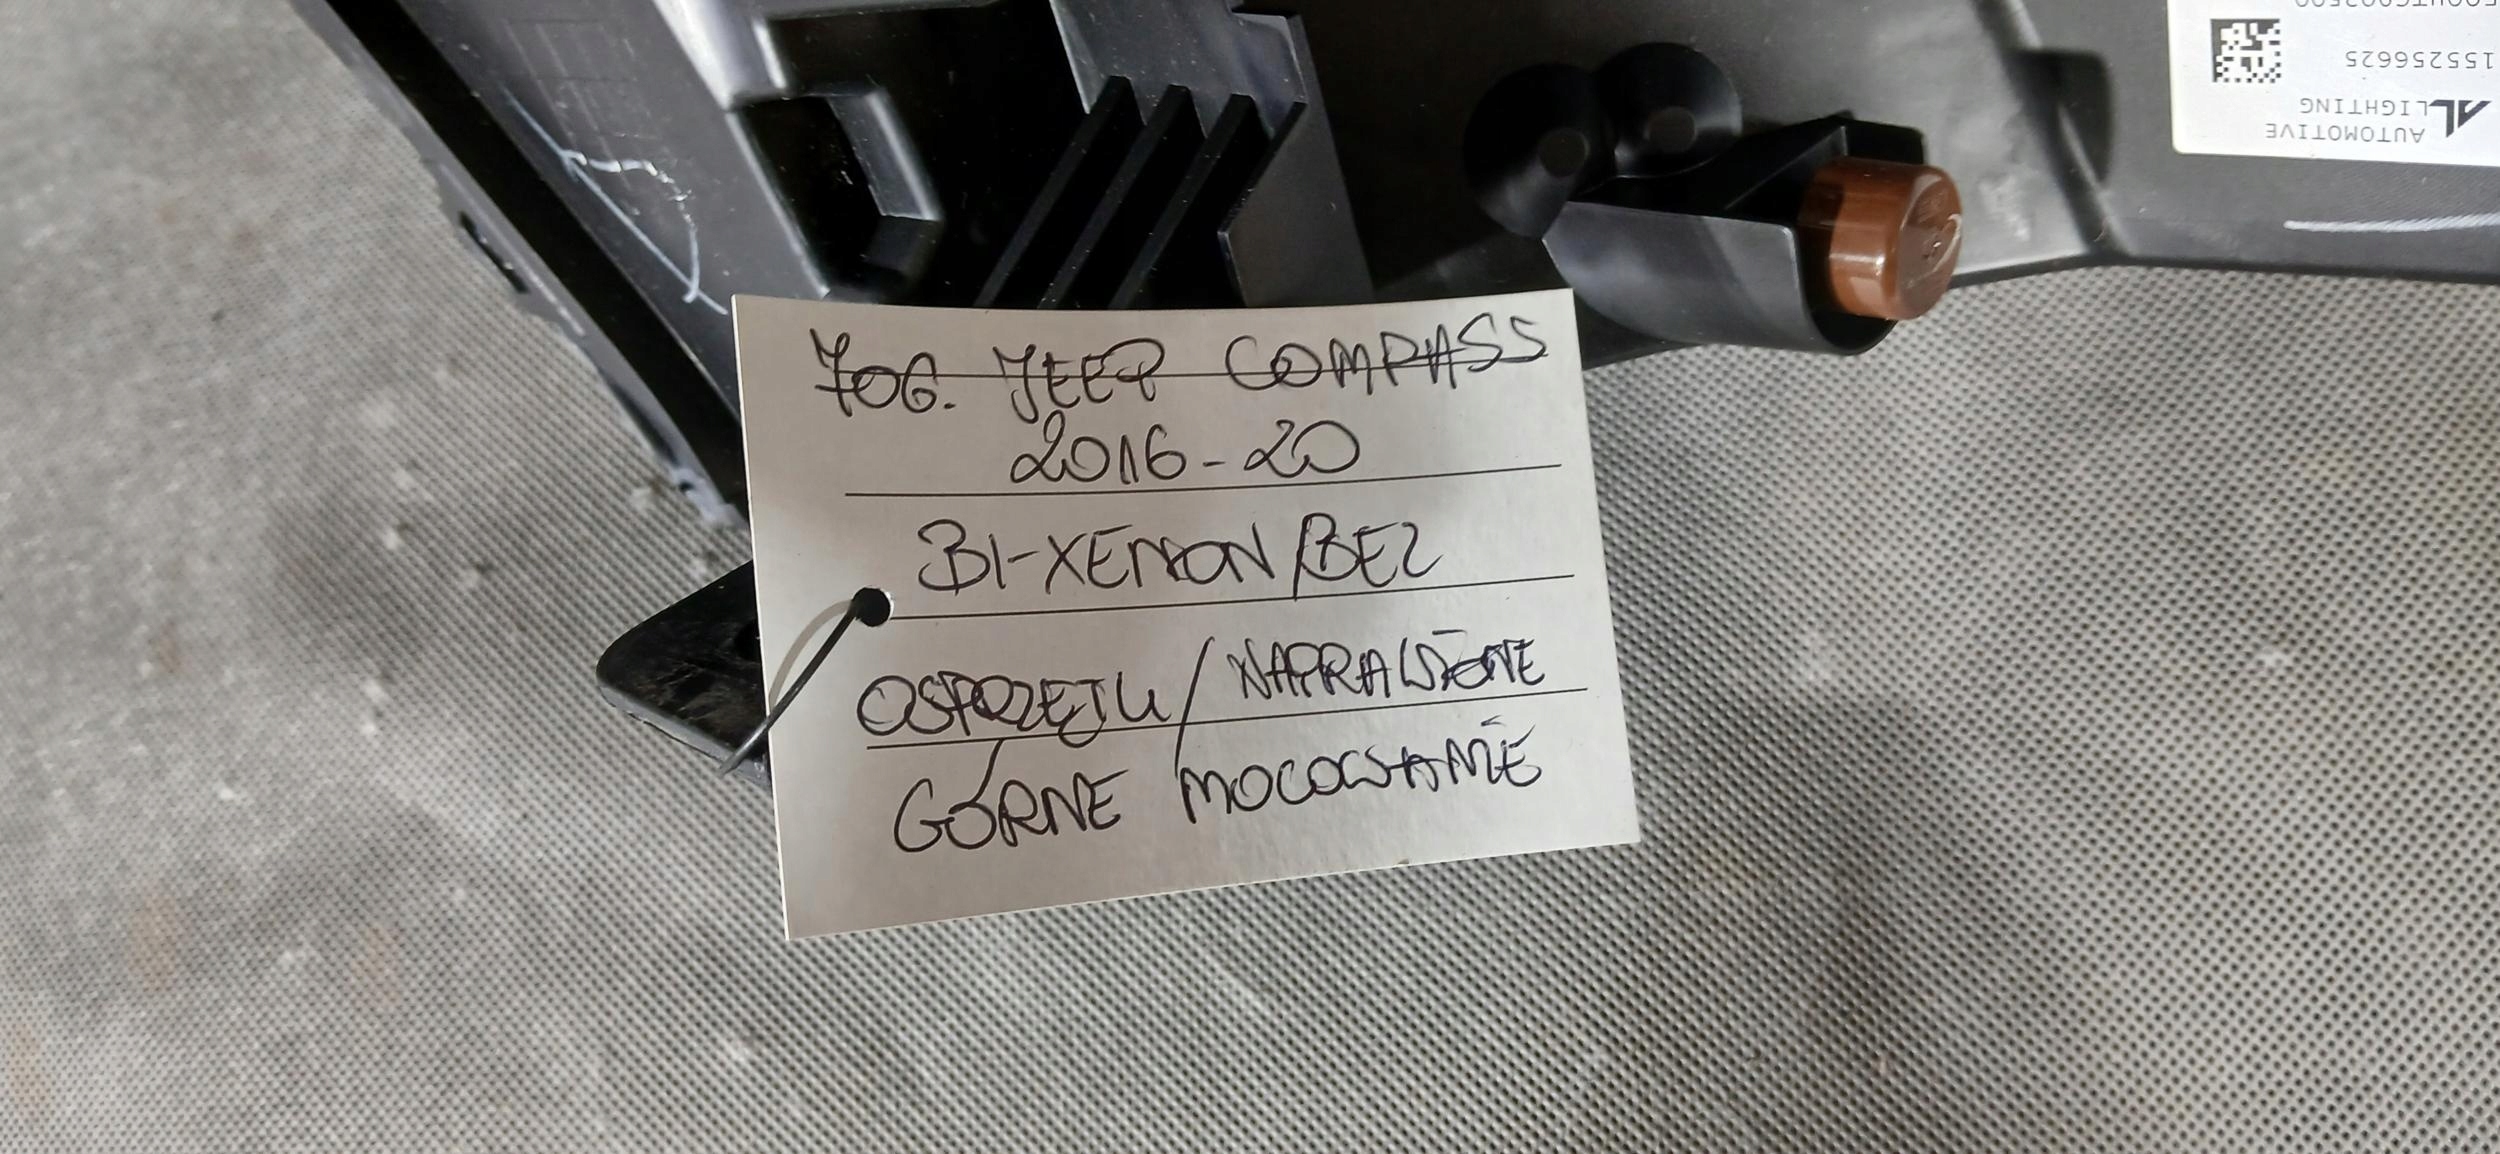 706. JEEP COMPASS
2016-20
BI-XENON/BEZ
OSPRZĘTU/NAPRAWIONE
GÓRNE MOCOWANIE
155256625
AL AUTOMOTIVE
LIGHTING